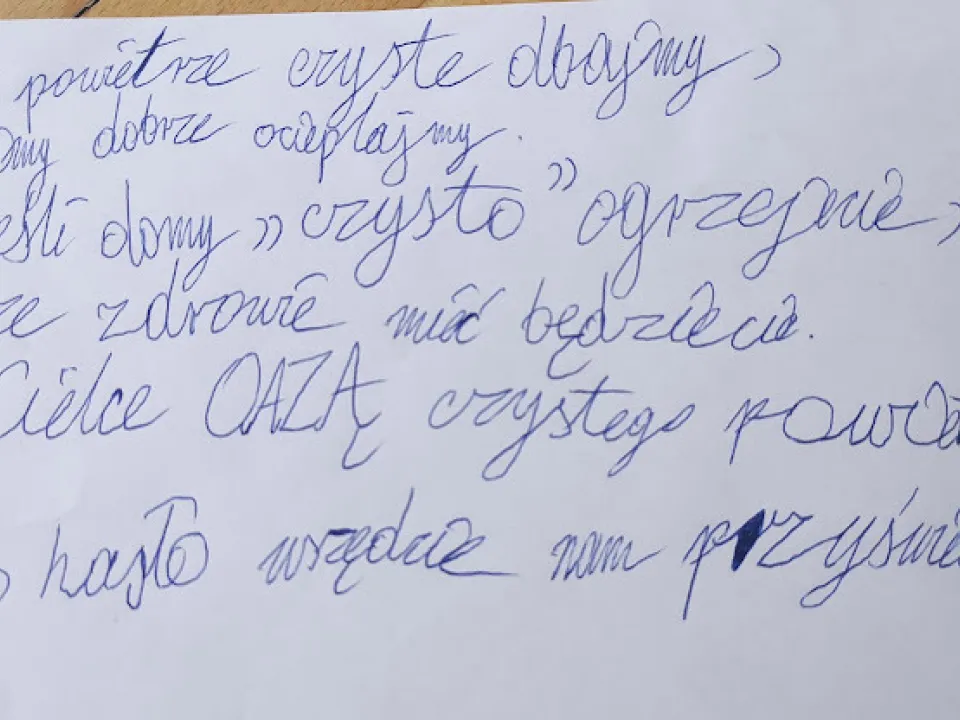 powietrze czyste dbajmy,
domy dobrze ocieplajmy.
eśli domy „czysto” ogrzejecie,
ze zdrowie mieć będziecie.
Kielce OAZĄ czystego powie
hasło wszędzie nam przyświe